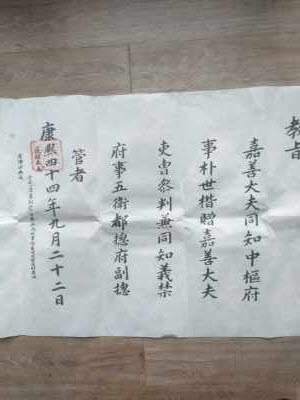 教旨
嘉善大夫同知中樞府
事朴世楷贈嘉善大夫
吏曺叅判兼同知義禁
府事五衛都摠府副摠
管者
康熙四十四年九月二十二日